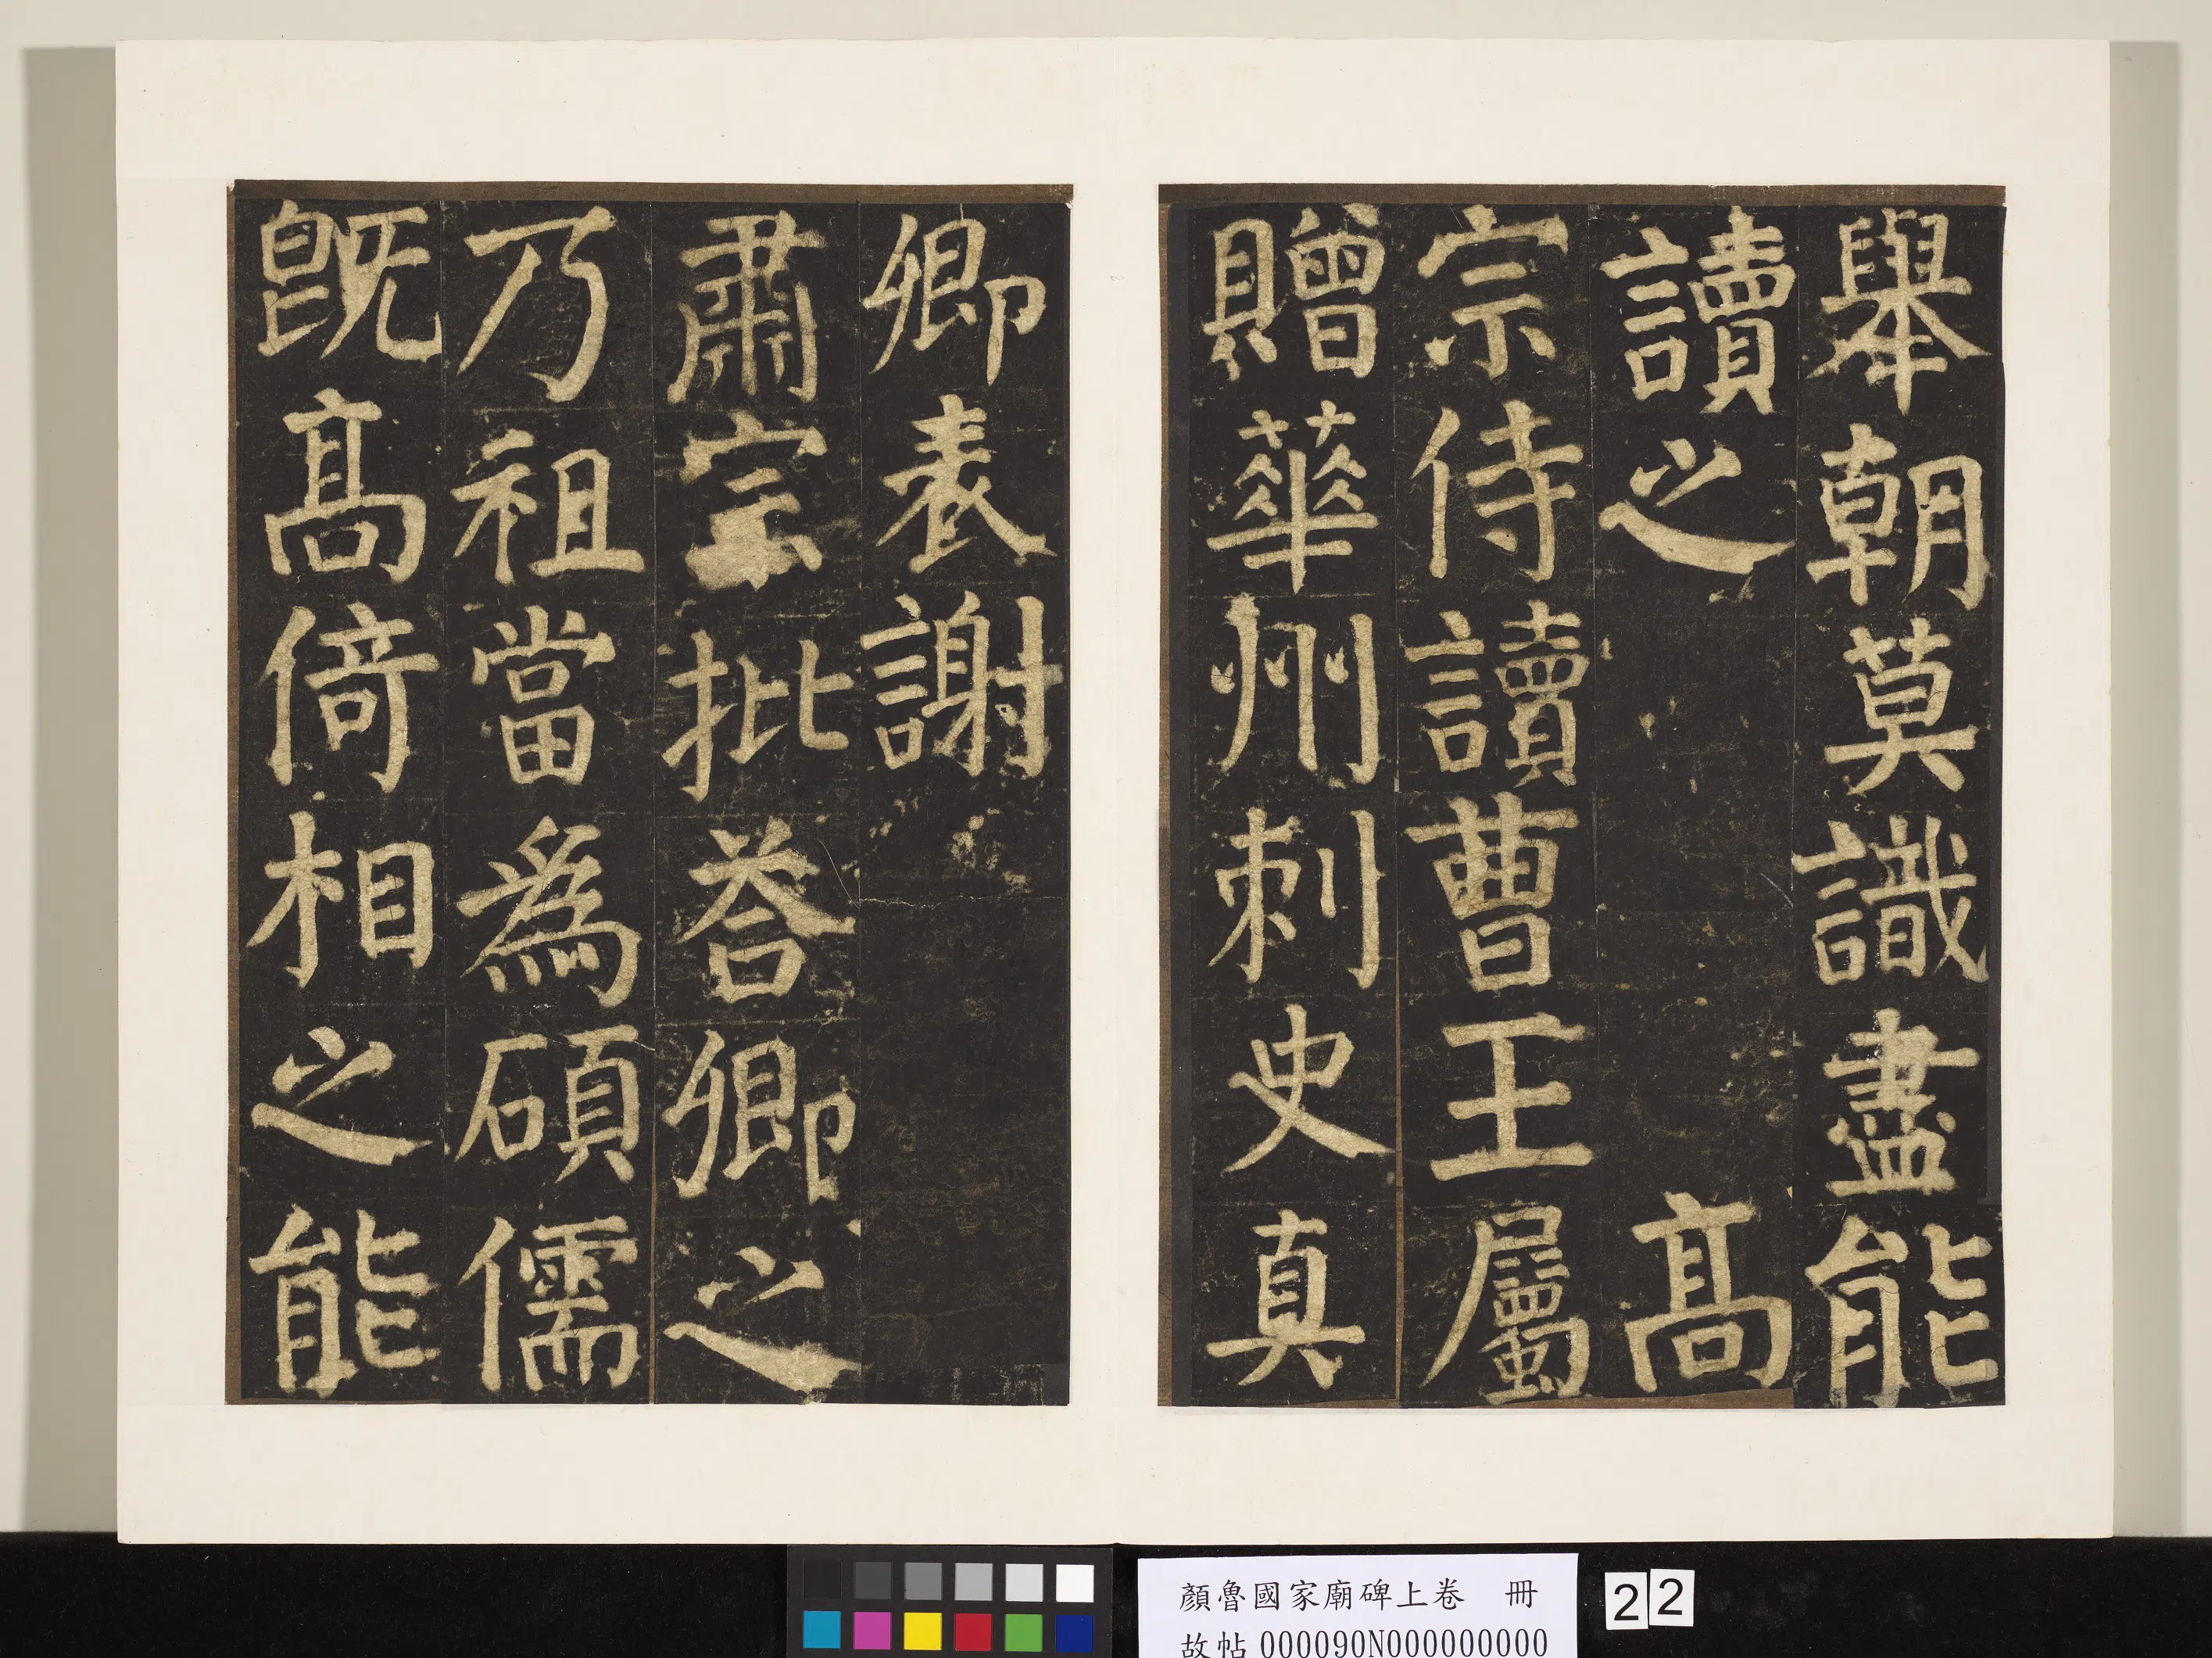 舉朝莫識盡能
讀之高
宗侍讀曹王屬
贈華州刺史真
卿表謝
肅宗批荅卿之
乃祖當為碩儒
既高倚相之能
顏魯國家廟碑上卷 冊
故帖 000090N000000000
22